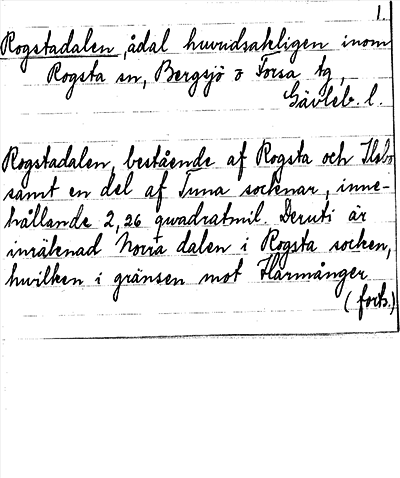 1.
Rogstadalen, ådal huvudsakligen inom
Rogsta sn, Bergsjö o Forsa tg,
Gävleb. l.
Rogstadalen, bestående af Rogsta och Ilsbo
samt en del af Tuna socknar, inne-
hållande 2,26 qwadratmil. Deruti är
inräknad Norra dalen i Rogsta socken,
hwilken i gränsen mot Harmånger
(forts.)